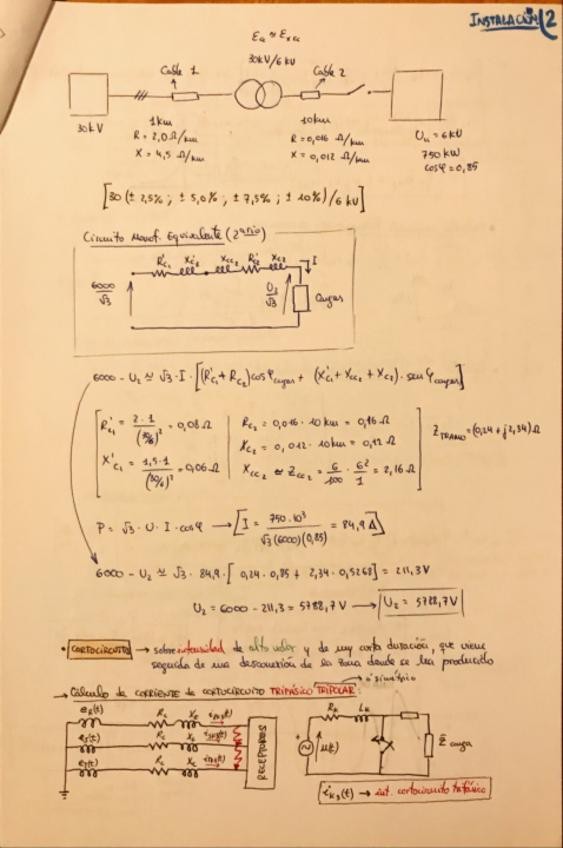 INSTALACIÓN 2
Ecc ≈ Excc
30kV/6 kV
Cable 1
Cable 2
30 kV
1km
R = 2,0 Ω/km
X = 4,5 Ω/km
10km
R = 0,016 Ω/km
X = 0,012 Ω/km
Un = 6kV
750 kW
cosφ = 0,85
[30 (± 2,5% ; ± 5,0% ; ± 7,5% ; ± 10%) / 6 kV]
Circuito Monof. Equivalente (2ario)
R'c1 X'c1 Xcc2 Rc2 Xc2 I
6000/√3
U2/√3
Cargas
6000 - U2 ≃ √3 · I · [(R'c1 + Rc2) cosφ cargas + (X'c1 + Xcc2 + Xc2) · senφ cargas]
R'c1 = 2·1/(30/6)² = 0,08 Ω
Rc2 = 0,016 · 10km = 0,16 Ω
Z TRAMO = (0,24 + j2,34) Ω
X'c1 = 1,5·1/(30/6)² = 0,06 Ω
Xc2 = 0,012 · 10km = 0,12 Ω
Xcc2 ≈ Zcc2 = 6/100 · 6²/1 = 2,16 Ω
P = √3 · U · I · cosφ → [I = 750·10³/√3(6000)(0,85) = 84,9 A]
6000 - U2 ≃ √3 · 84,9 · [0,24 · 0,85 + 2,34 · 0,5268] = 211,3V
U2 = 6000 - 211,3 = 5788,7V → U2 = 5788,7V
• CORTOCIRCUITO → sobreintensidad de alto valor y de muy corta duración, que viene
seguida de una desconexión de la zona donde se ha producido
→ Cálculo de corriente de cortocircuito TRIFÁSICO TRIPOLAR:
o simétrico
eR(t)
eS(t)
eT(t)
RECEPTORES
Rk Lk
u(t)
Z carga
ik3(t) → int. cortocircuito trifásico